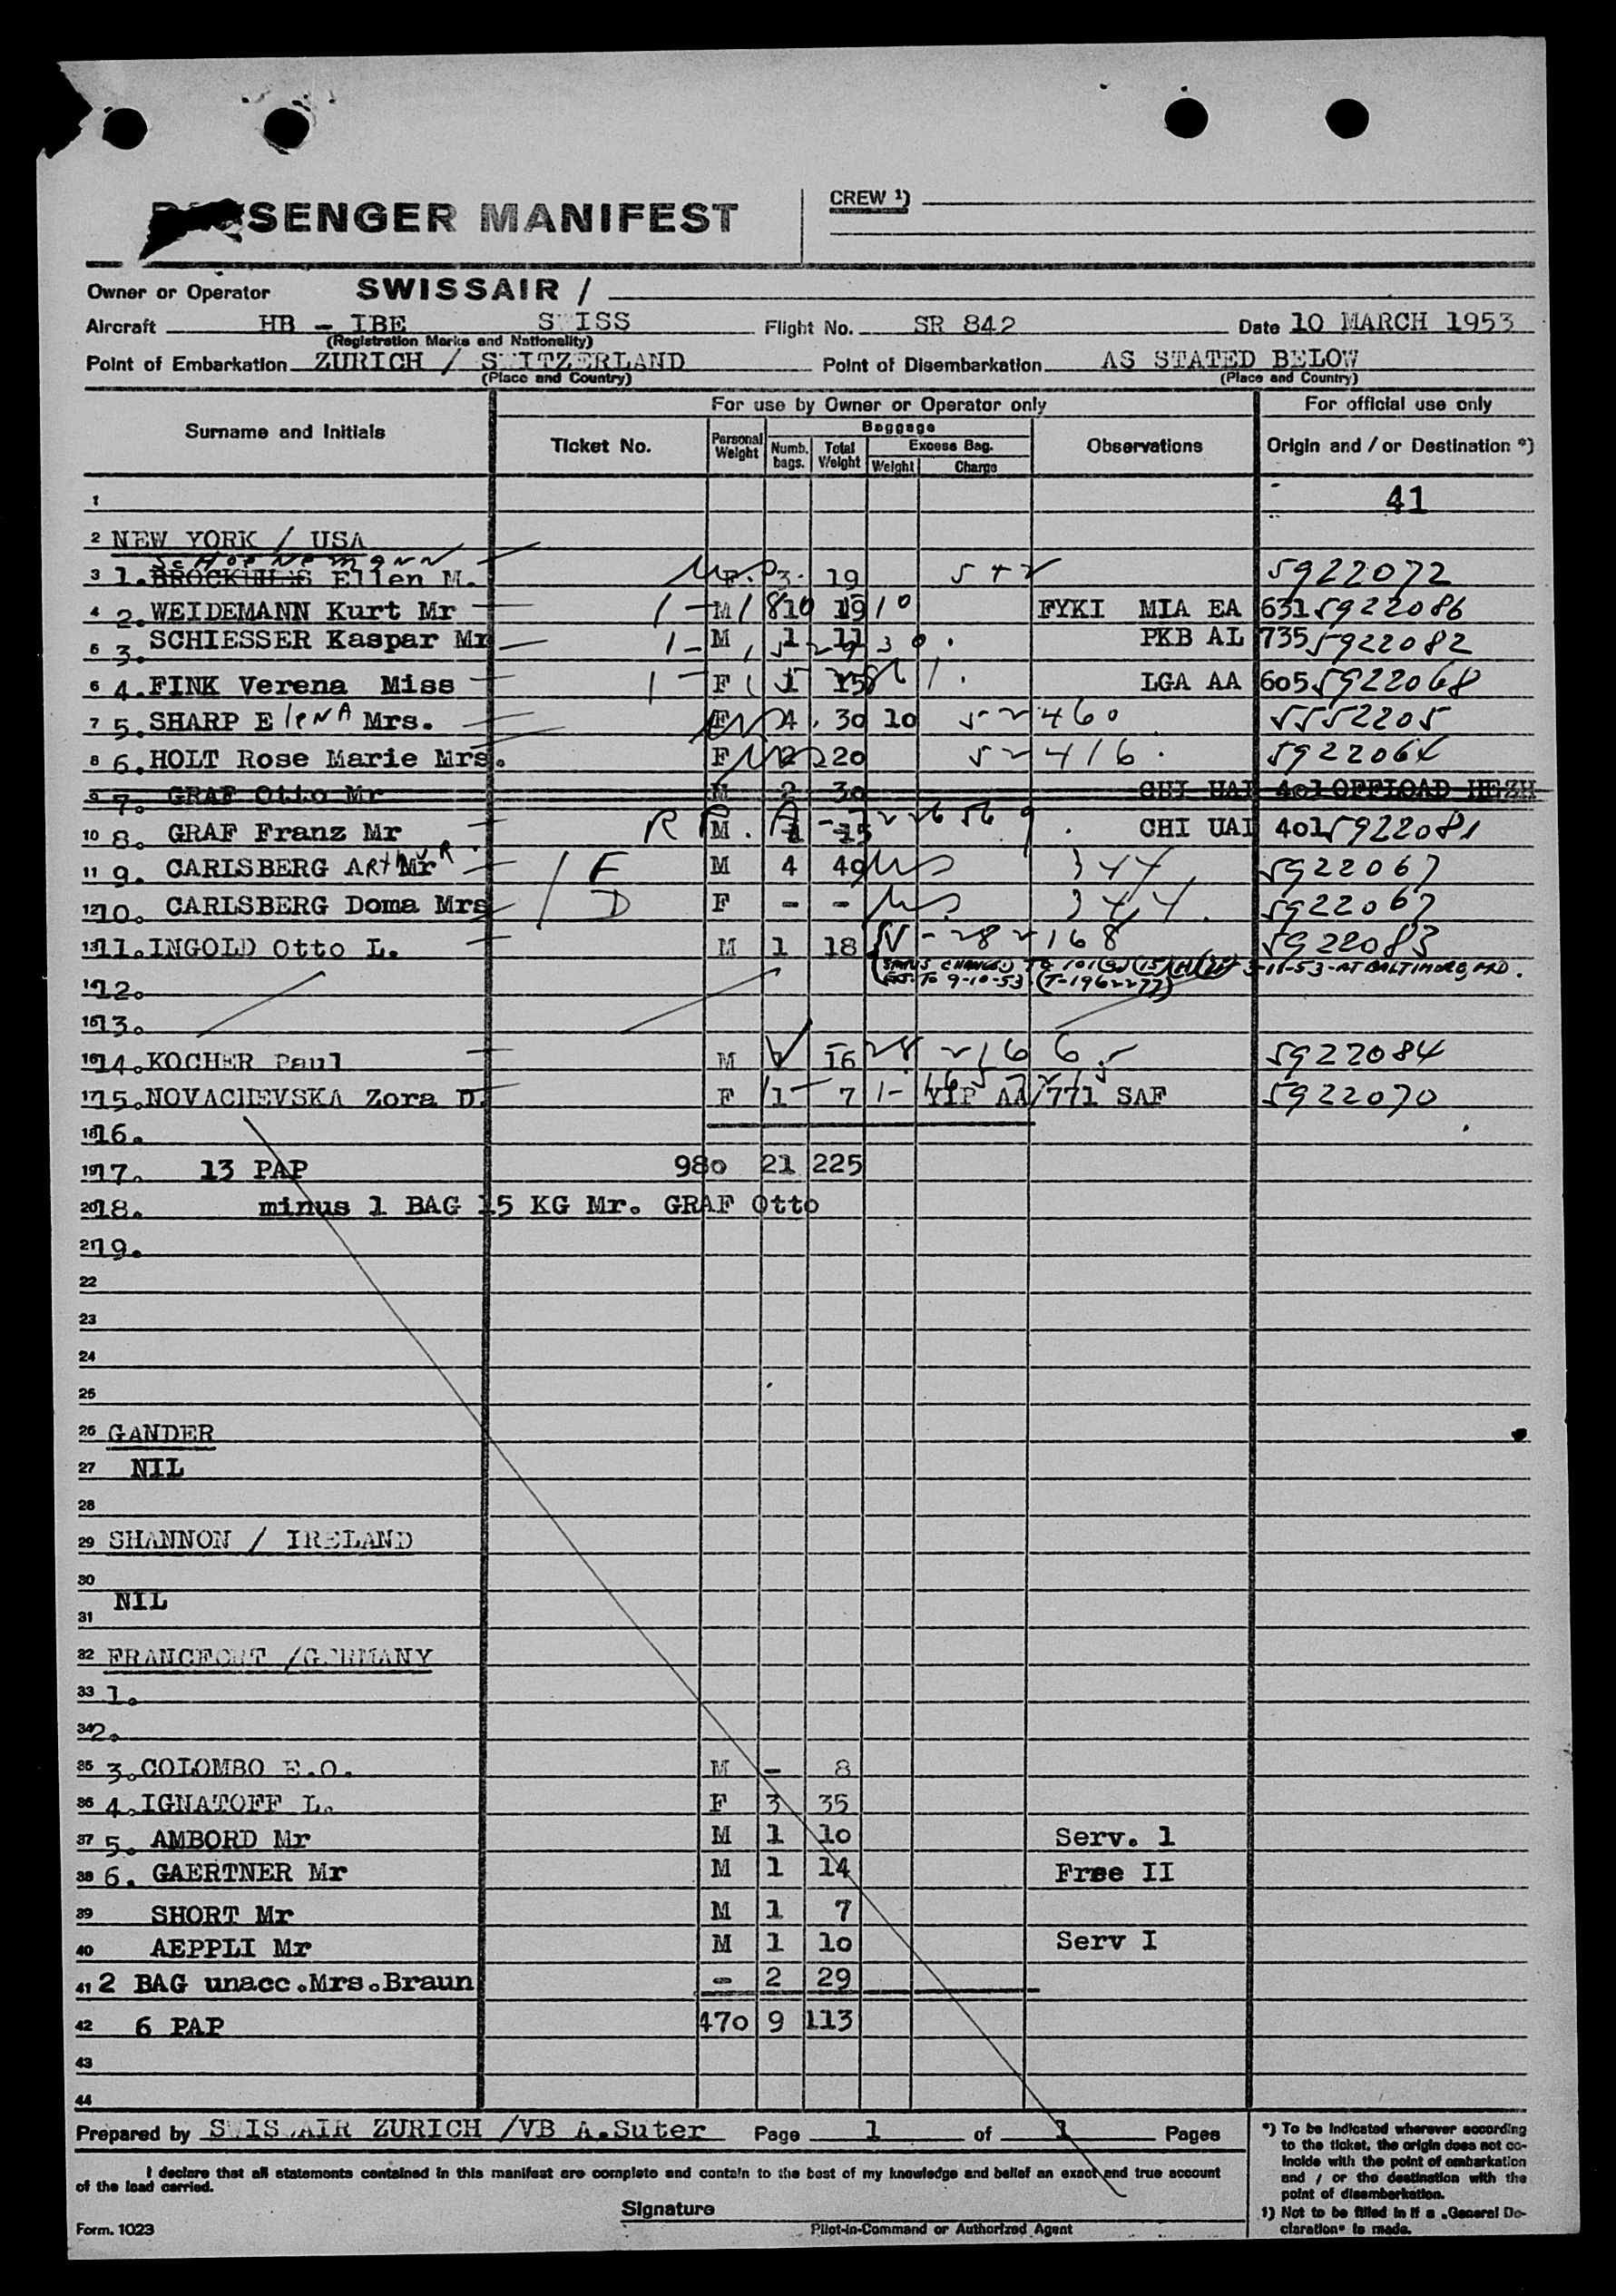 SENGER MANIFEST
CREW ¹)
Owner or Operator SWISSAIR /
Aircraft HB - IBE SWISS Flight No. SR 842 Date 10 MARCH 1953
(Registration Marks and Nationality)
Point of Embarkation ZURICH / SWITZERLAND Point of Disembarkation AS STATED BELOW
(Place and Country) (Place and Country)
For use by Owner or Operator only For official use only
Surname and Initials Ticket No. Personal Weight Baggage Numb. bags. Total Weight Excess Bag. Weight Charge Observations Origin and / or Destination *)
1 41
2 NEW YORK / USA
Schoenemann
3 1. Ellen M. F. 3 19 542 5922072
4 2. WEIDEMANN Kurt Mr M 19 10 FYKI MIA EA 631 5922086
5 3. SCHIESSER Kaspar Mr M 1 11 PKB AL 735 5922082
6 4. FINK Verena Miss F 1 15 LGA AA 605 5922068
7 5. SHARP Elena Mrs. F 4 30 10 52460 5552205
8 6. HOLT Rose Marie Mrs. F 2 20 52416 592206
9 7. GRAF Otto Mr M 2 30 CHI UAL 401 OFFLOAD
10 8. GRAF Franz Mr M 1 15 CHI UAL 401 5922081
11 9. CARLSBERG ARthuR Mr M 4 40 US 344 5922067
12 10. CARLSBERG Doma Mrs F - - US 344 5922067
13 11. INGOLD Otto L. M 1 18 V-282168 5922083
(STATUS CHANGED TO 101 (15)(H) 3-11-53 - AT BALTIMORE, MD.
14 12. TO 9-10-53. (T-1962277)
15 13.
16 14. KOCHER Paul M 16 28 2166 5922084
17 15. NOVACHEVSKA Zora D. F 1 7 YIP AA/771 SAF 5922070
18 16.
19 17. 13 PAP 980 21 225
20 18. minus 1 BAG 15 KG Mr. GRAF Otto
21 19.
22
23
24
25
26 GANDER
27 NIL
28
29 SHANNON / IRELAND
30
NIL
31
32 FRANCFORT /GERMANY
33 1.
34 2.
35 3. COLOMBO E.O. M - 8
36 4. IGNATOFF L. F 3 35
37 5. AMBORD Mr M 1 10 Serv. 1
38 6. GAERTNER Mr M 1 14 Free II
39 SHORT Mr M 1 7
40 AEPPLI Mr M 1 10 Serv I
41 2 BAG unacc.Mrs.Braun - 2 29
42 6 PAP 470 9 113
43
44
Prepared by SWISSAIR ZURICH /VB A.Suter Page 1 of 1 Pages
I declare that all statements contained in this manifest are complete and contain to the best of my knowledge and belief an exact and true account
of the load carried.
Signature
Pilot-in-Command or Authorized Agent
Form. 1023
*) To be indicated wherever according
to the ticket, the origin does not co-
incide with the point of embarkation
and / or the destination with the
point of disembarkation.
¹) Not to be filled in if a „General De-
claration" is made.